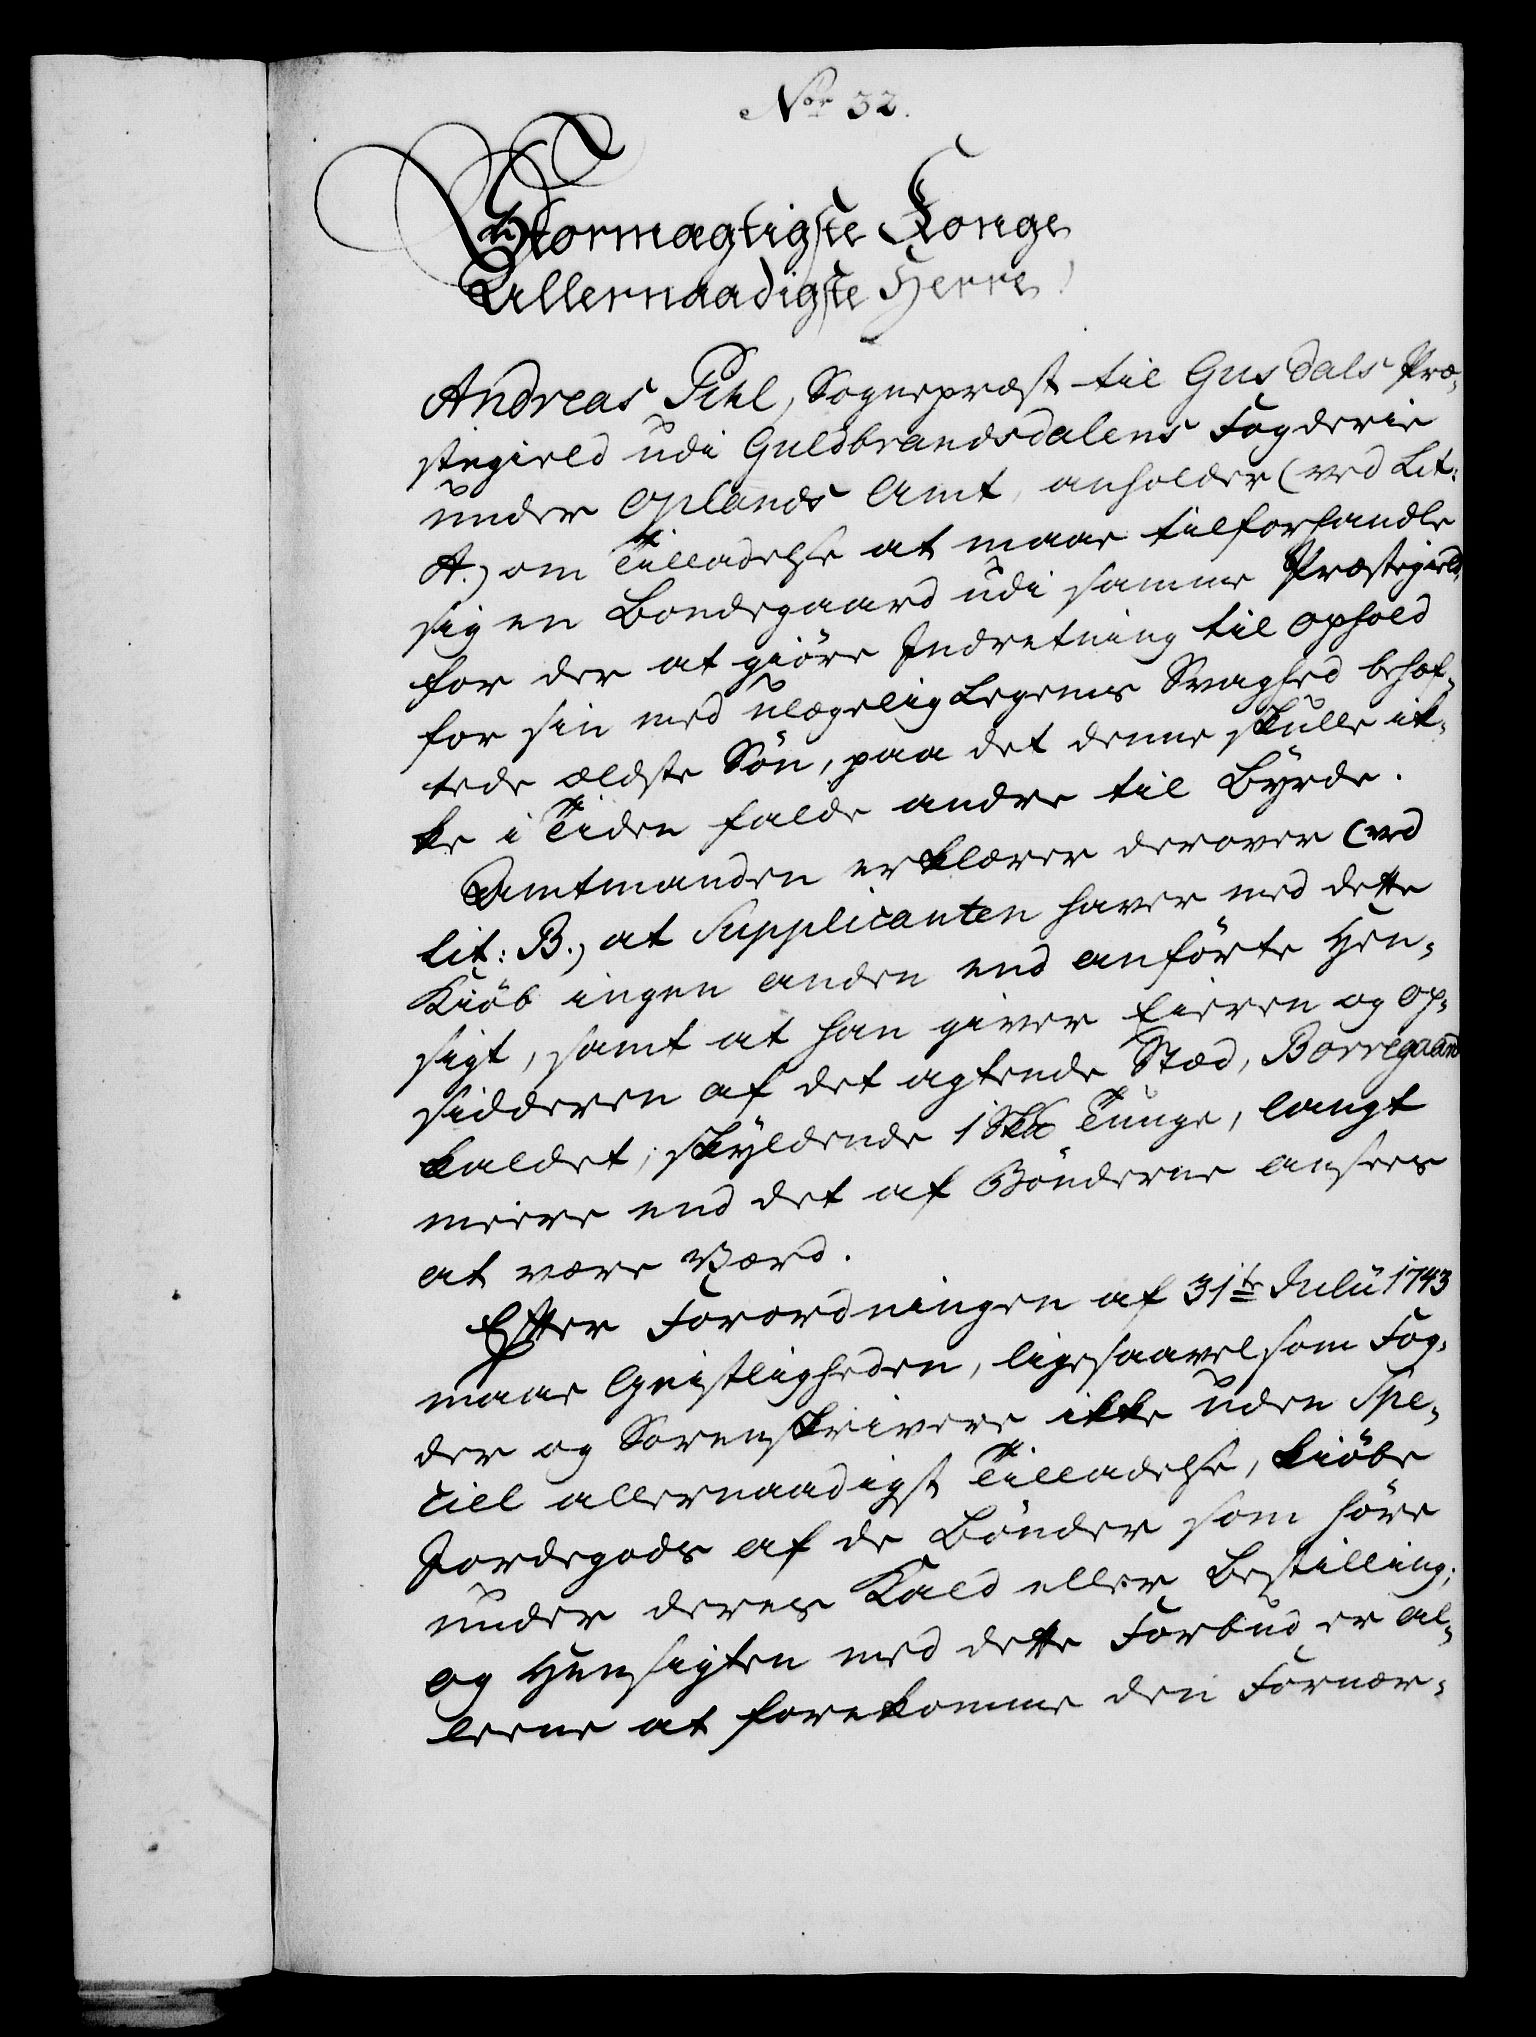 No. 32.
Stormægtigste Konge
Allernaadigste Herre!
Andreas Pihl, Sognepræst til Gusdals Præ-
stegield udi Guldbrandsdalens Fogderie
under Oplands Amt, anholder (ved Lit:
A.) om Tilladelse at maae tilforhandle
sig en Bondegaard udi samme Præstegield,
for der at giöre Indretning til Ophold
for sin med ulægelig Legems Svaghed behef-
tede ældste Sön, paa det denne skulle ik-
ke i Tiden falde andre til Byrde.
Amtmanden erklærer derover (ved
Lit: B.) at Supplicanten haver med dette
Kiöb ingen anden end anförte Hen-
sigt, samt at han giver Eieren og Op-
sidderen af det agtende Stæd, Borregaard
kaldet, skyldende 1 Sk℔ Tunge, langt
meere end det af Bönderne ansees
at være Værd.
Efter Forordningen af 31te Julii 1743
maae Geistligheden, ligesaavelsom Fog-
der og Sorenskrivere ikke uden Spe-
ciel allernaadigst Tilladelse, kiöbe
Jordegods af de Bönder som höre
under deres Kald eller Bestilling;
og Hensigten med dette Forbud er al-
leene at forekomme den Fornær-